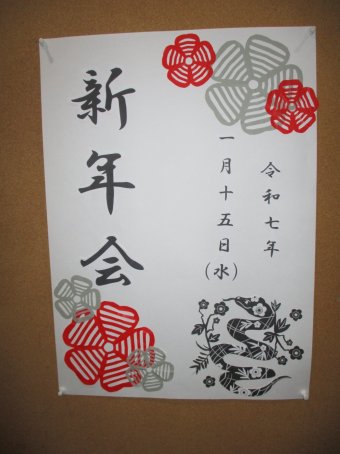 令和七年
一月十五日(水)
新年会